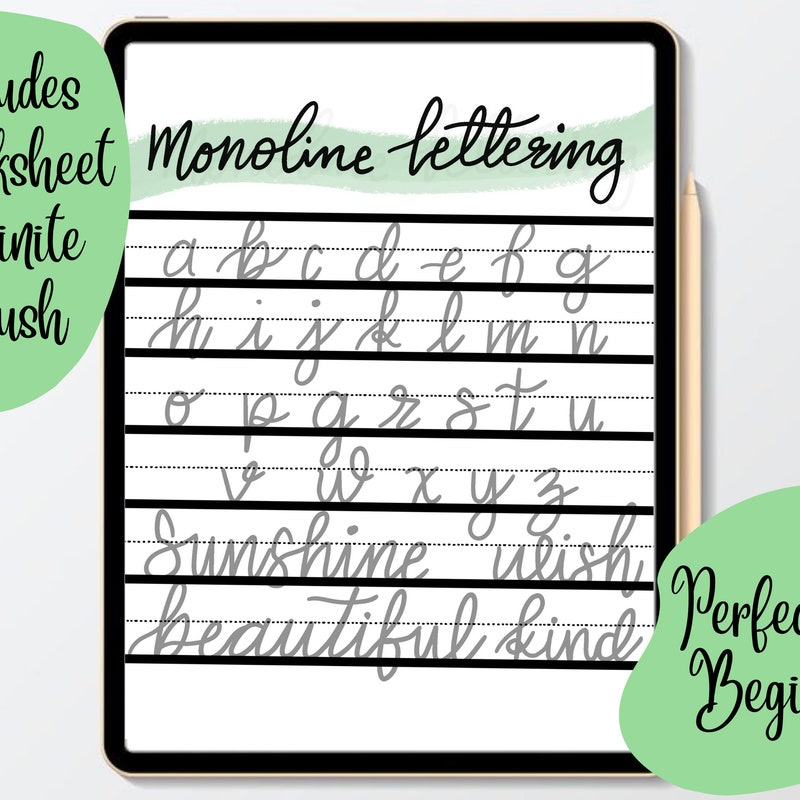 udes
ksheet
inite
ush
Monoline lettering
a b c d e f g
h i j k l m n
o p q r s t u
v w x y z
Sunshine wish
beautiful kind
Perfec
Begi